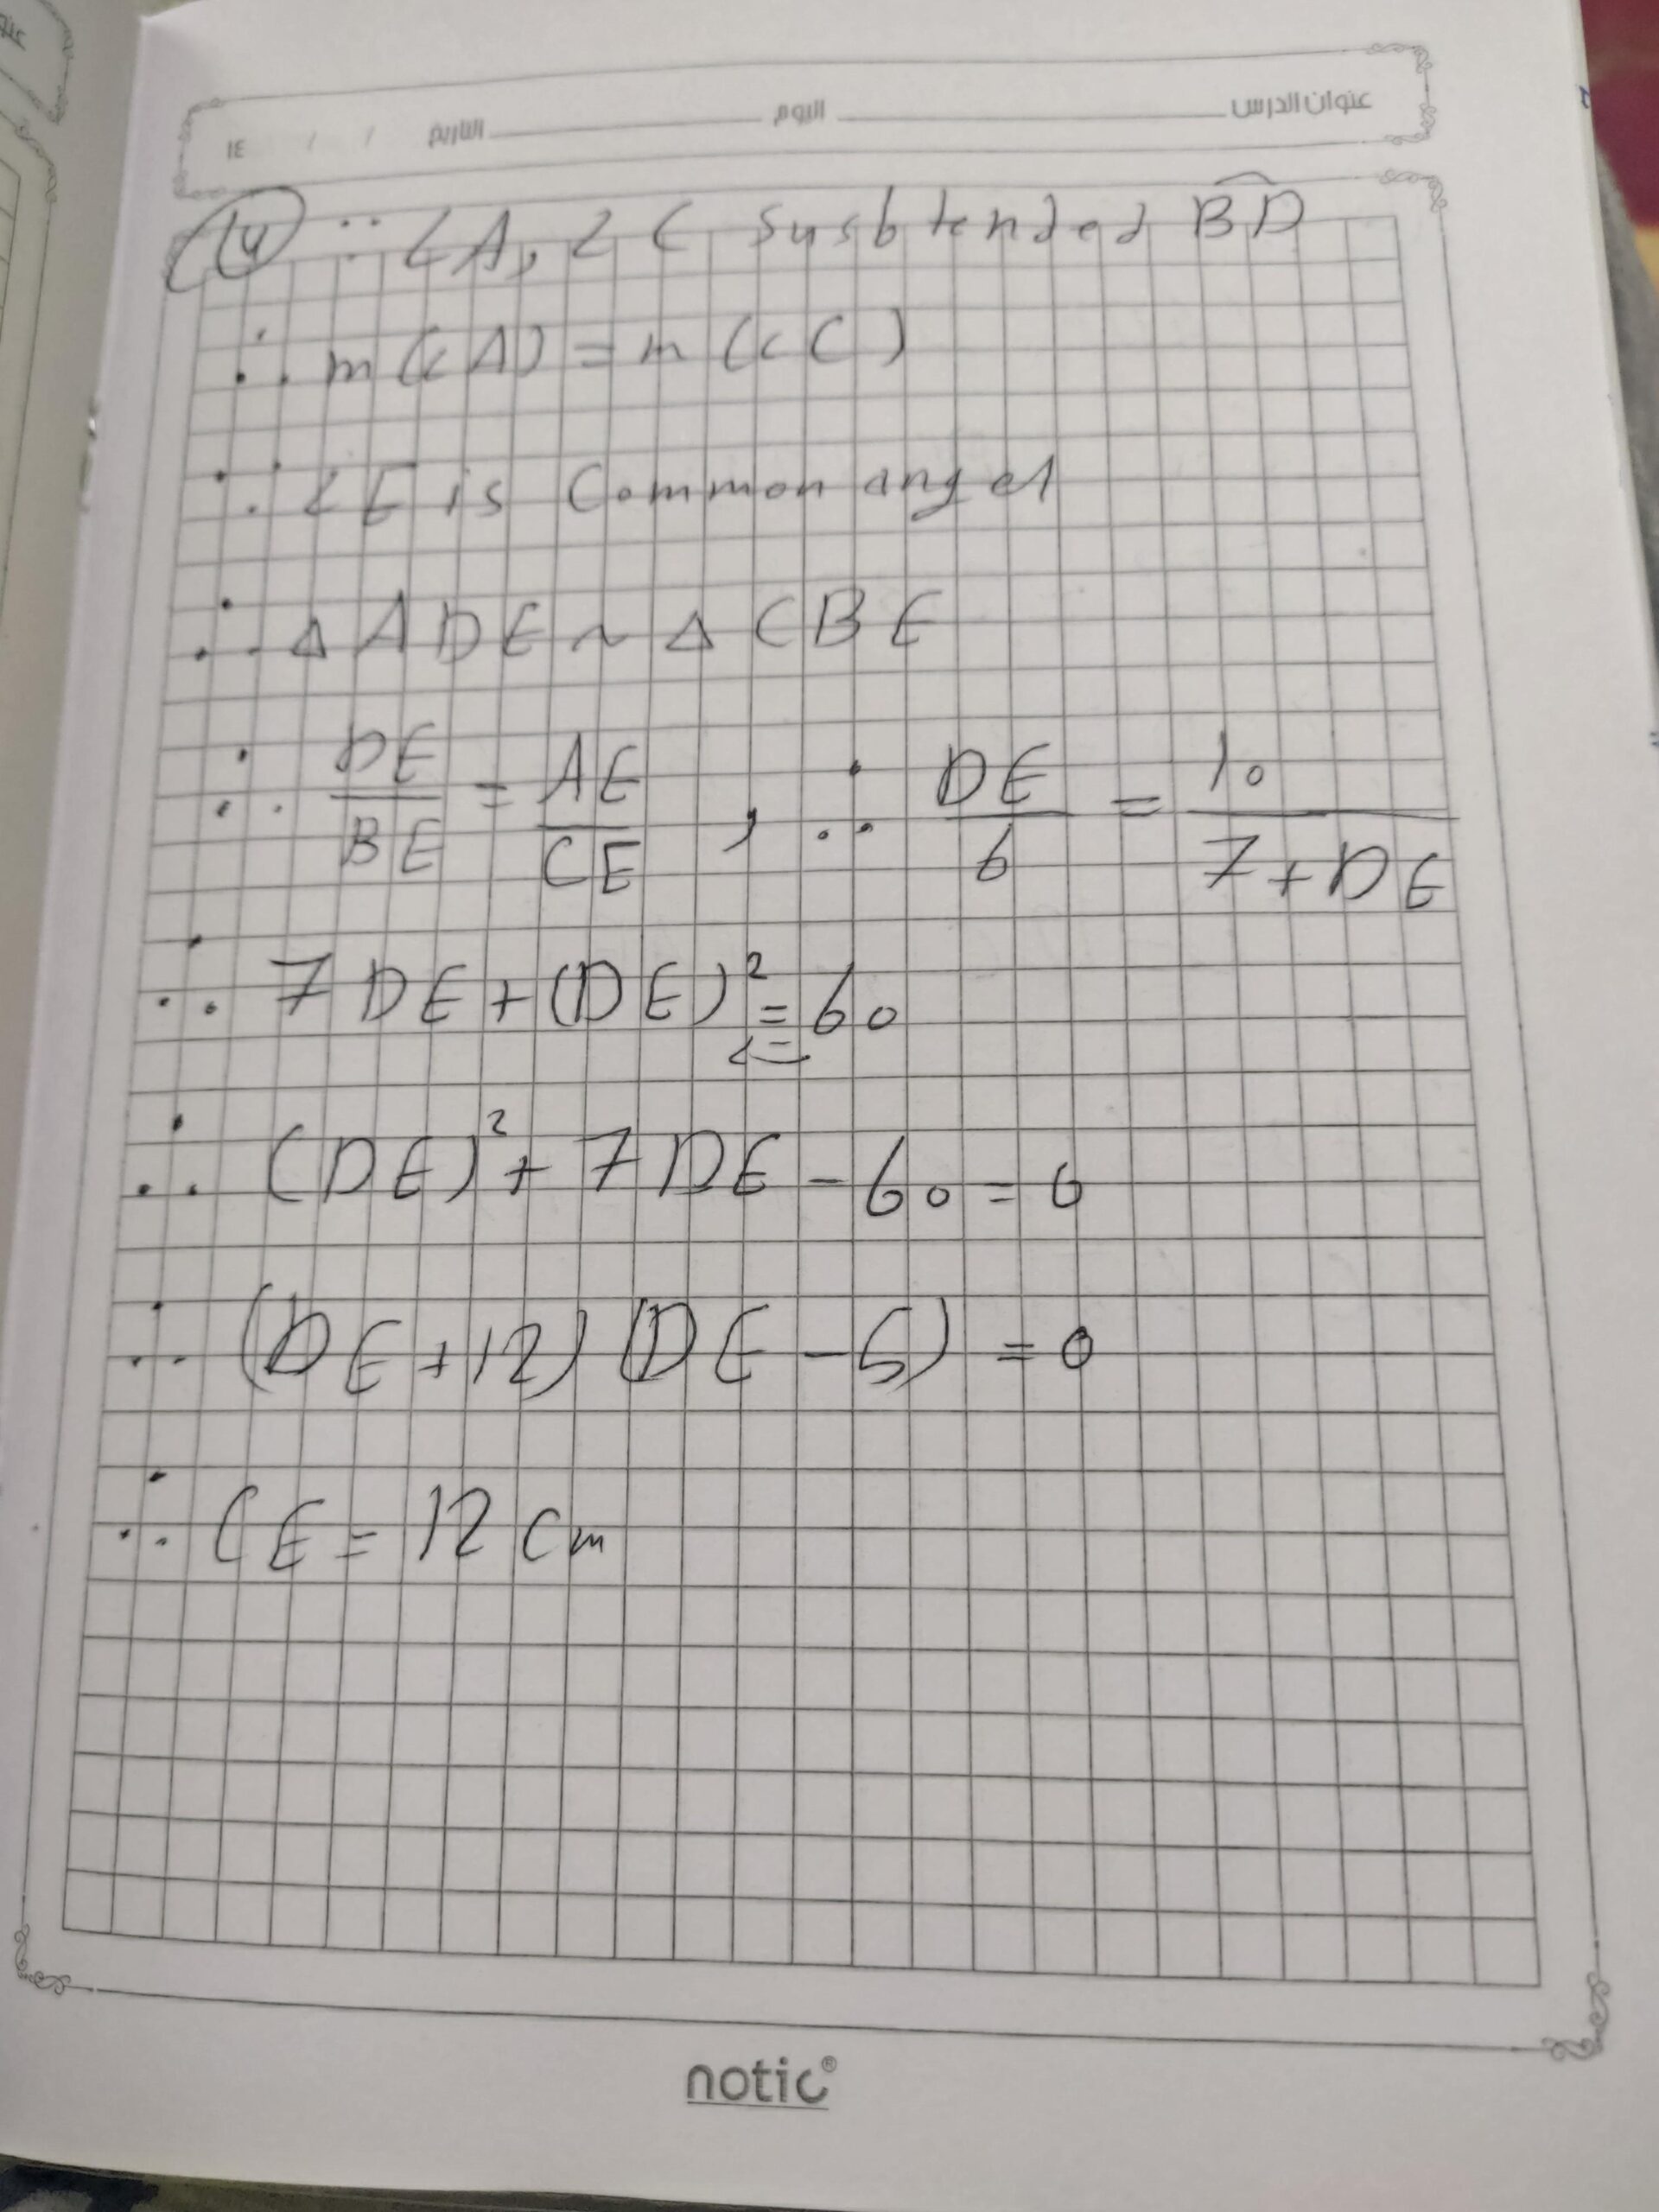 عنوان الدرس اليوم التاريخ / / ١٤
(4) ∵ ∠A, ∠C susbtended BD
∴ m(∠A) = m(∠C)
∵ ∠E is Common angel
∴ Δ ADE ~ Δ CBE
∴ DE/BE = AE/CE , ∴ DE/6 = 10/(7+DE)
∴ 7DE + (DE)² = 60
∴ (DE)² + 7DE - 60 = 0
∴ (DE+12)(DE-5) = 0
∴ CE = 12 cm
notic®